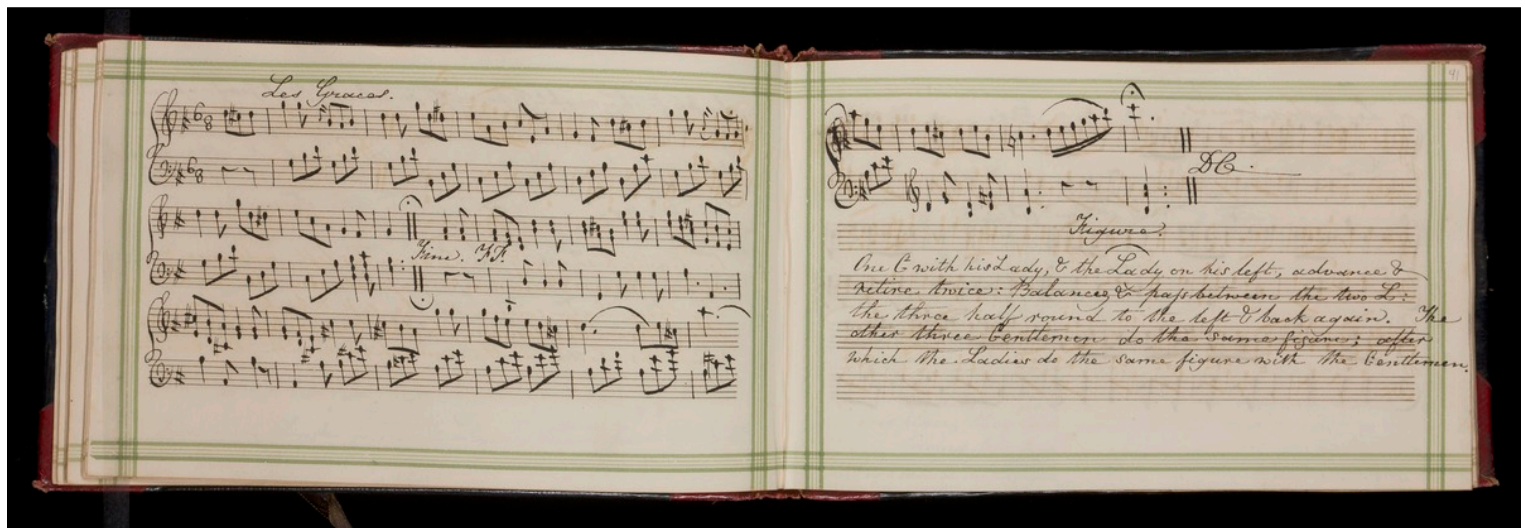 Les Graces.
6 8
6 8
Fine. FF.
41
DC.
Figure.
One C with his Lady, & the Lady on his left, advance &
retire twice: Balancez & pass between the two L:
the three half round to the left & back again. The
other three Gentlemen do the same figure; after
which the Ladies do the same figure with the Gentlemen.